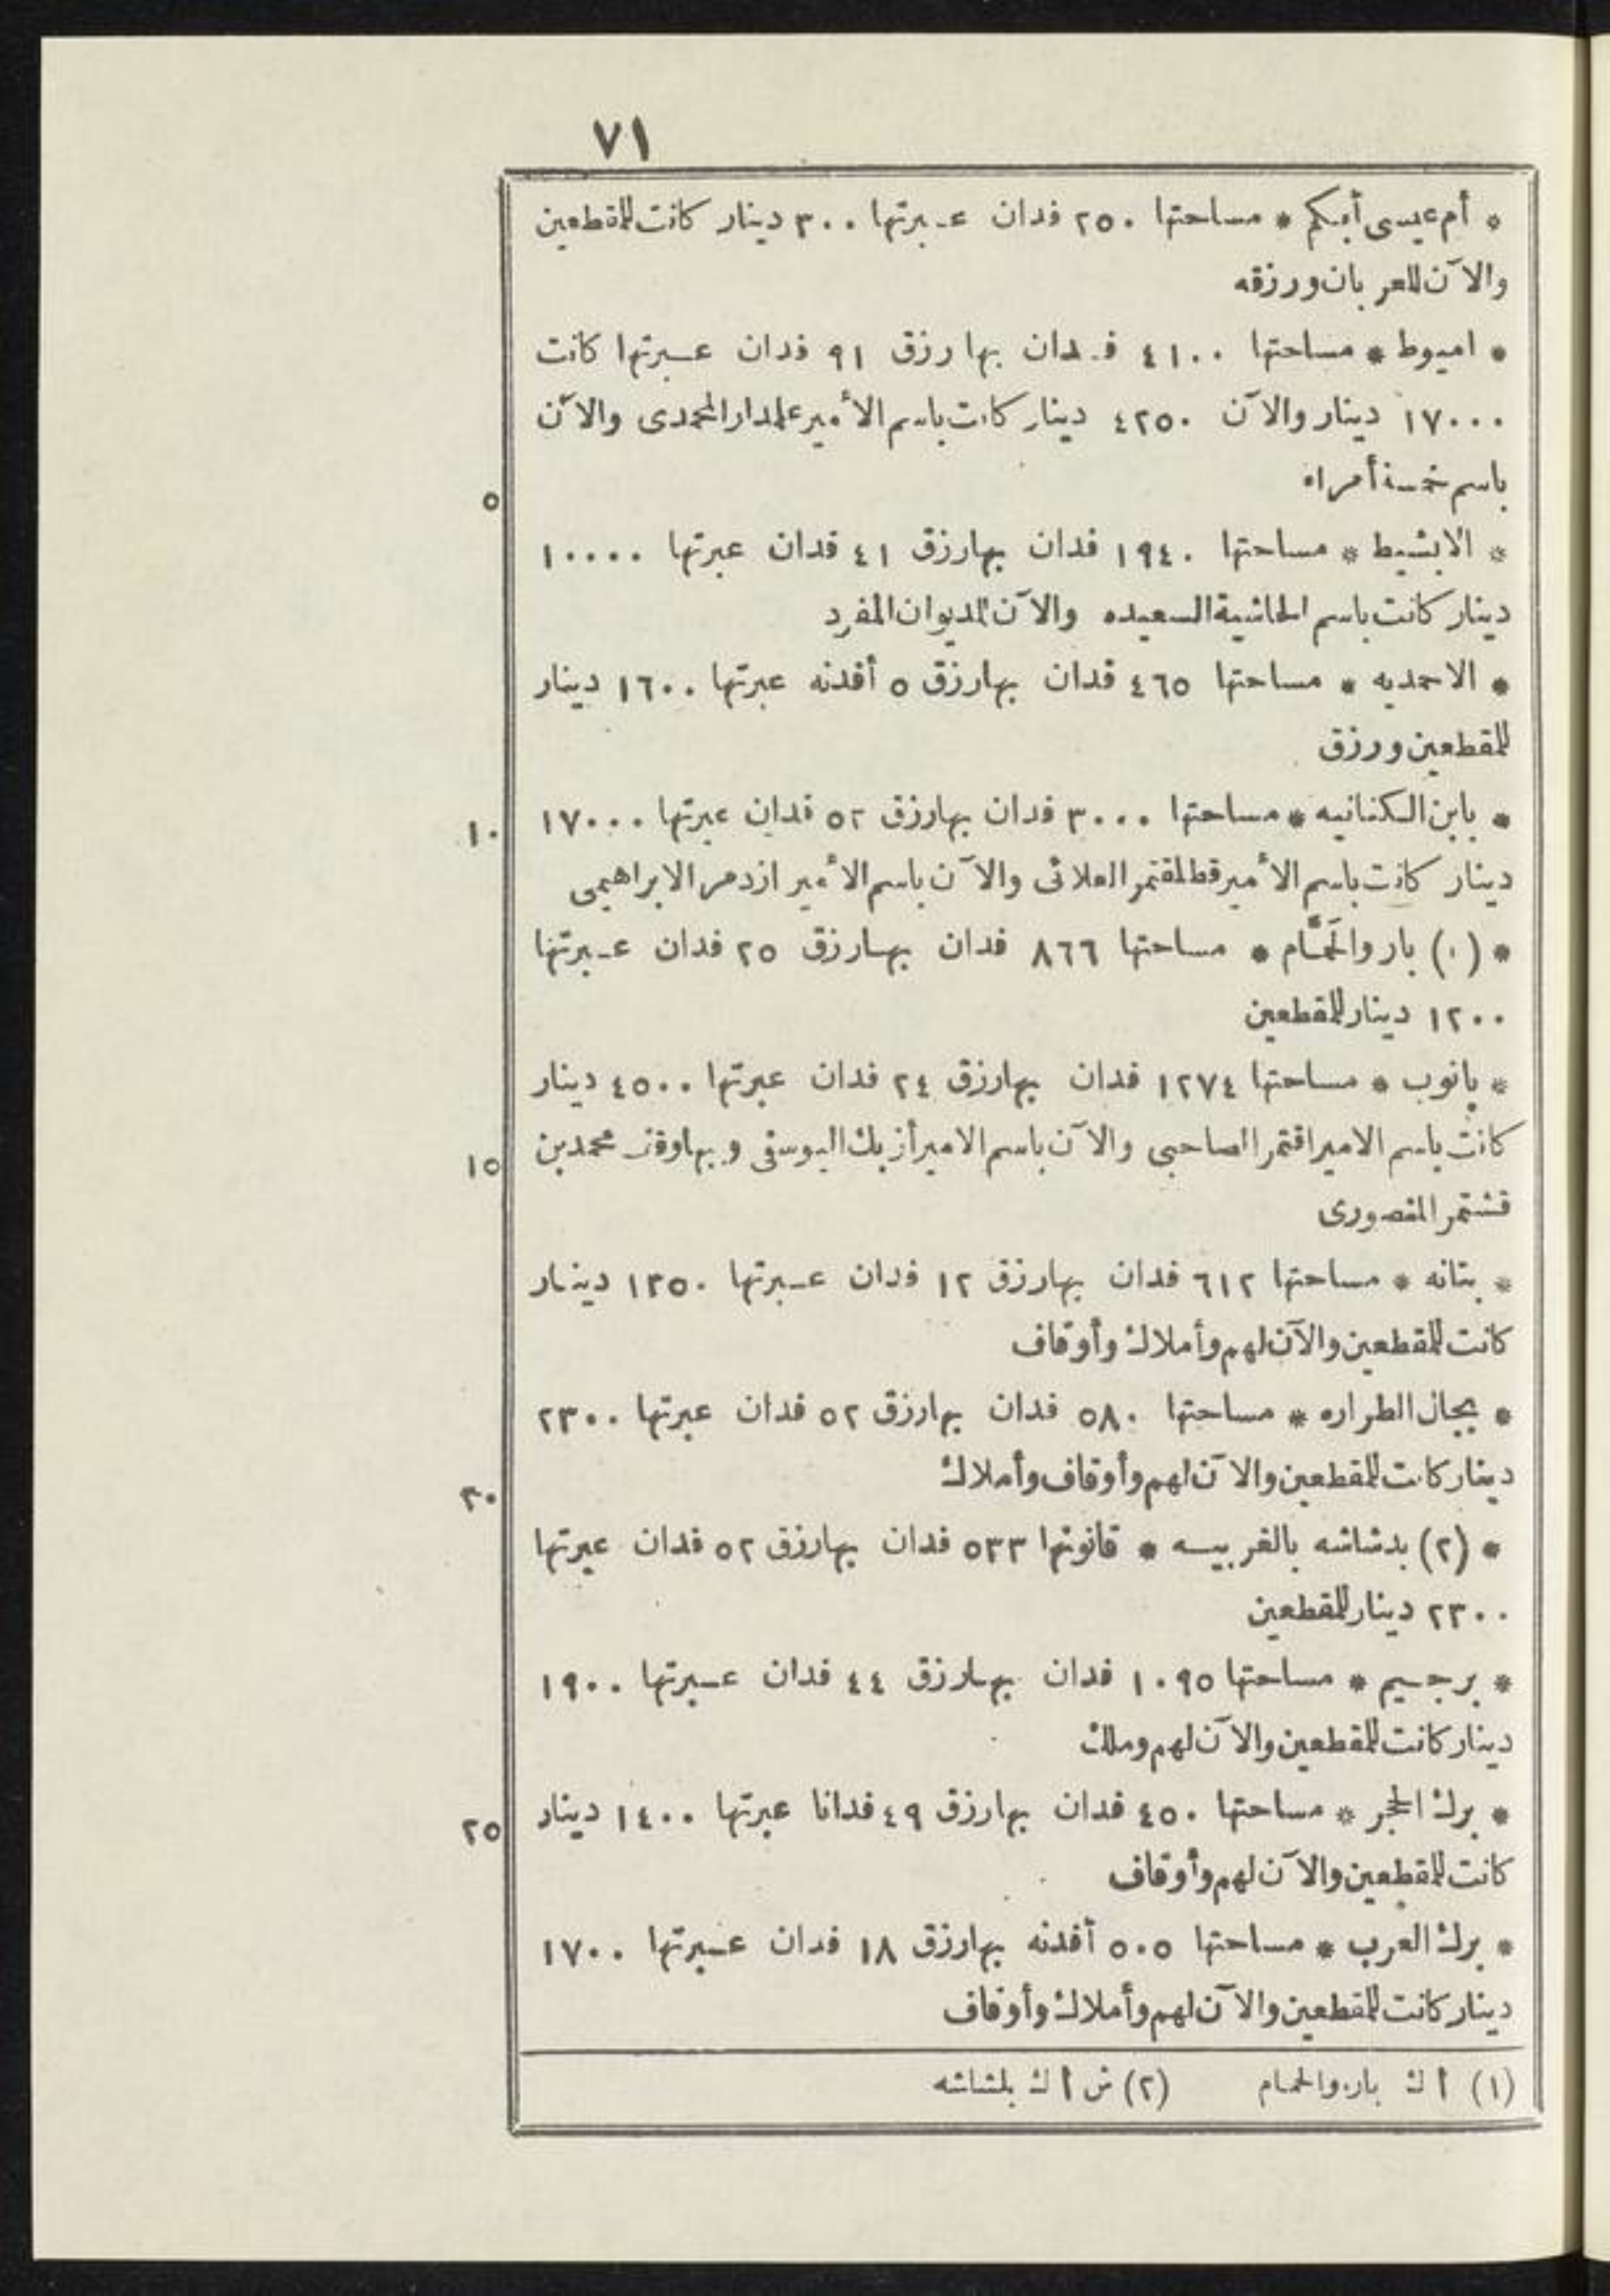 ٧١
* أم عيسى أبكم * مساحتها ٢٥٠ فدان عبرتها ٣٠٠ دينار كانت للمقطعين
والآن للعربان ورزقه
* اميوط * مساحتها ٤١٠٠ فدان بها رزق ٩١ فدان عبرتها كانت
١٧٠٠٠ دينار والآن ٤٢٥٠ دينار كانت باسم الأمير علمدار المحمدى والآن
باسم خمسة أمراء
٥
* الابشيط * مساحتها ١٩٤٠ فدان بها رزق ٤١ فدان عبرتها ١٠٠٠٠
دينار كانت باسم الحاشية السعيده والآن للديوان المفرد
* الاحمديه * مساحتها ٤٦٥ فدان بها رزق ٥ أفدنه عبرتها ١٦٠٠ دينار
للمقطعين ورزق
* بابن الكنانيه * مساحتها ٣٠٠٠ فدان بها رزق ٥٢ فدان عبرتها ١٧٠٠٠
١٠
دينار كانت باسم الأمير قطلقتمر العلائى والآن باسم الأمير ازدمر الابراهيمى
* (١) بار والحَمَّام * مساحتها ٨٦٦ فدان بها رزق ٢٥ فدان عبرتها
١٢٠٠ دينار للمقطعين
* بانوب * مساحتها ١٢٧٤ فدان بها رزق ٢٤ فدان عبرتها ٤٥٠٠ دينار
كانت باسم الامير اقتمر الصاحبى والآن باسم الامير أزبك اليوسفى وبها وقف محمد بن
١٥
قشتمر المنصورى
* بتانه * مساحتها ٦١٢ فدان بها رزق ١٢ فدان عبرتها ١٣٥٠ دينار
كانت للمقطعين والآن لهم وأملاك وأوقاف
* بجال الطراره * مساحتها ٥٨٠ فدان بها رزق ٥٢ فدان عبرتها ٢٣٠٠
دينار كانت للمقطعين والآن لهم وأوقاف وأملاك
٢٠
* (٢) بدشاشه بالغربيه * قانونها ٥٣٣ فدان بها رزق ٥٢ فدان عبرتها
٢٣٠٠ دينار للمقطعين
* برجيم * مساحتها ١٠٩٥ فدان بها رزق ٤٤ فدان عبرتها ١٩٠٠
دينار كانت للمقطعين والآن لهم وملك
* برك الحجر * مساحتها ٤٥٠ فدان بها رزق ٤٩ فدانا عبرتها ١٤٠٠ دينار
٢٥
كانت للمقطعين والآن لهم وأوقاف
* برك العرب * مساحتها ٥٠٥ أفدنه بها رزق ١٨ فدان عبرتها ١٧٠٠
دينار كانت للمقطعين والآن لهم وأملاك وأوقاف
(١) أ ك بار والحمام (٢) ش أ ك بلشاشه